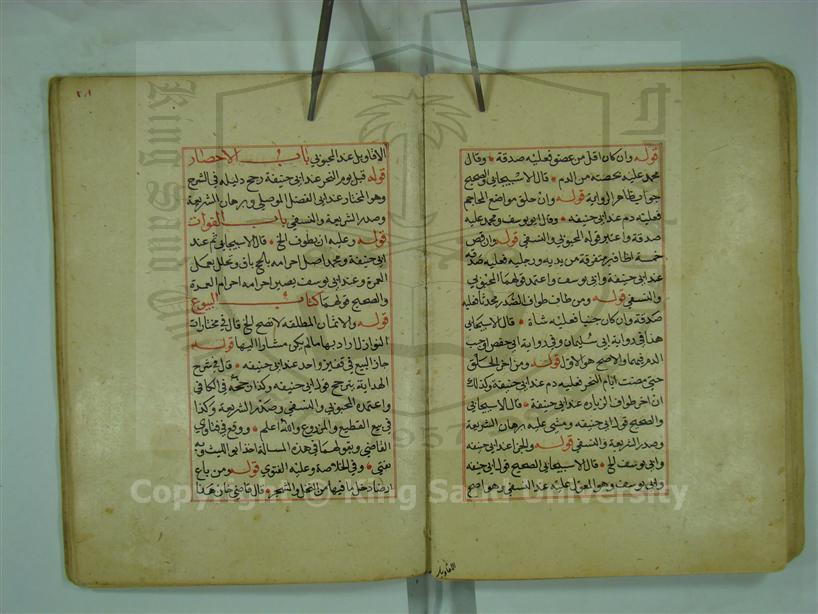 قوله وان كان اقل من عضو فعليه صدقة وقال
محمد عليه بحصته من الدم قال الاسبيجابي والصحيح
جواب ظاهر الرواية قوله وان حلق مواضع المحاجم
فعليه دم عند ابي حنيفة وقال ابو يوسف ومحمد عليه
صدقة واعتمد قوله المحبوبي والنسفي قوله وان قص
خمسة اظافير متفرقة من يديه ورجليه فعليه صدقة
عند ابي حنيفة وابي يوسف واعتمد قولهما المحبوبي
والنسفي قوله ومن طاف طواف الصدر محدثا فعليه
صدقة وان كان جنبا فعليه شاة قال الاسبيجابي
هذا في رواية ابي سليمان وفي رواية ابي حفص يوجب
الدم فيهما والاصح هو الاول قوله ومن اخر الحلق
حتى مضت ايام النحر فعليه دم عند ابي حنيفة وكذلك
ان اخر طواف الزيارة عند ابي حنيفة قال الاسبيجابي
والصحيح قوله ابي حنيفة ومشى عليه برهان الشريعة
وصدر الشريعة والنسفي قوله والجزا عند ابي حنيفة
وابي يوسف الخ قال الاسبيجابي الصحيح قول ابي حنيفة
وابي يوسف وهو المعول عليه عند النسفي وهو اصح
الاقاويل
٢٠١
الاقاويل عند المحبوبي باب الاحصار
قوله قبل يوم النحر عند ابي حنيفة رجح دليله في الشرح
وهو المختار عند ابي الفضل الموصلي وبرهان الشريعة
وصدر الشريعة والنسفي باب الفوات
قوله وعليه ان يطوف الخ قال الاسبيجابي ثم عند
ابي حنيفة ومحمد اصل احرامه بالحج باق ويتحلل بعمل
العمرة وعند ابي يوسف يصير احرامه احرام العمرة
والصحيح قولهما كتاب البيوع
قوله والاثمان المطلقة لا تصح الخ قال في مختارات
النوازل اراد بها ما لم يكن مشارا اليها قوله
جاز البيع في قفيز واحد عند ابي حنيفة قال في شرح
الهداية يترجح قول ابي حنيفة وكذا رجحه في الكافي
واعتمده المحبوبي والنسفي وصدر الشريعة وكذا
في بيع القطيع والمذروع والله اعلم ووقع في فتاوي
القاضي وبقولهما في هذه المسالة اخذ ابو الليث وبه
يفتى وفي الخلاصة وعليه الفتوى قوله ومن باع
ارضا دخل ما فيها من النخل والشجر قال قاضي خان هذا
Copyright © King Saud University
King Saud University
1957